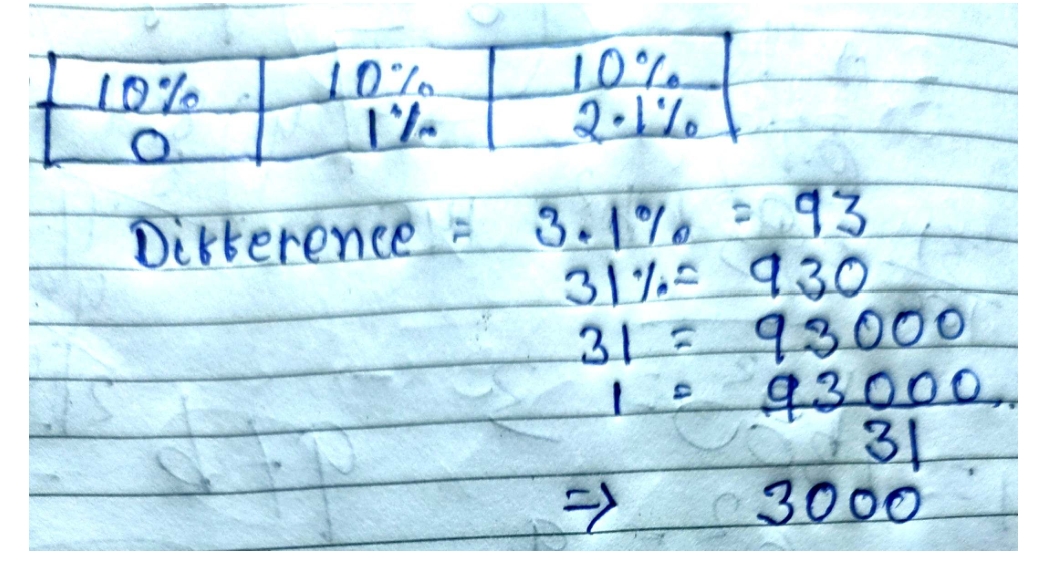 10% 10% 10%
0 1% 2.1%
Difference = 3.1% = 93
31% = 930
31 = 93000
1 = 93000
31
=> 3000